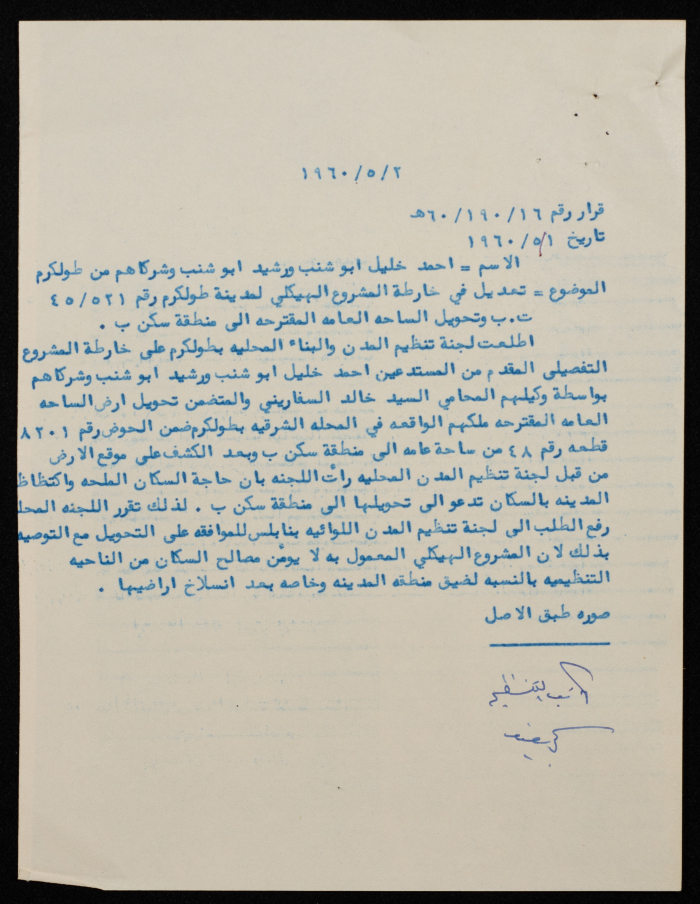 ١٩٦٠/٥/٢
قرار رقم ٦٠/١٩٠/١٦هـ
تاريخ ١٩٦٠/٥/١
الاسم = احمد خليل ابو شنب ورشيد ابو شنب وشركاهم من طولكرم
الموضوع = تعديل في خارطة المشروع الهيكلي لمدينة طولكرم رقم ٤٥/٥٢١
ت.ب وتحويل الساحه العامه المقترحه الى منطقة سكن ب .
اطلعت لجنة تنظيم المدن والبناء المحليه بطولكرم على خارطة المشروع
التفصيلي المقدم من المستدعين احمد خليل ابو شنب ورشيد ابو شنب وشركاهم
بواسطة وكيلهم المحامي السيد خالد السفاريني والمتضمن تحويل ارض الساحه
العامه المقترحه ملكهم الواقعه في المحله الشرقيه بطولكرم ضمن الحوض رقم ٨٢٠١
قطعه رقم ٤٨ من ساحة عامه الى منطقة سكن ب وبعد الكشف على موقع الارض
من قبل لجنة تنظيم المدن المحليه رأت اللجنه بان حاجة السكان الملحه واكتظاظ
المدينه بالسكان تدعو الى تحويلها الى منطقة سكن ب . لذلك تقرر اللجنه المحل
رفع الطلب الى لجنة تنظيم المدن اللوائيه بنابلس للموافقه على التحويل مع التوصيه
بذلك لان المشروع الهيكلي المعمول به لا يومن مصالح السكان من الناحيه
التنظيميه بالنسبه لضيق منطقه المدينه وخاصه بعد انسلاخ اراضيها .
صوره طبق الاصل
كاتب التنظيم